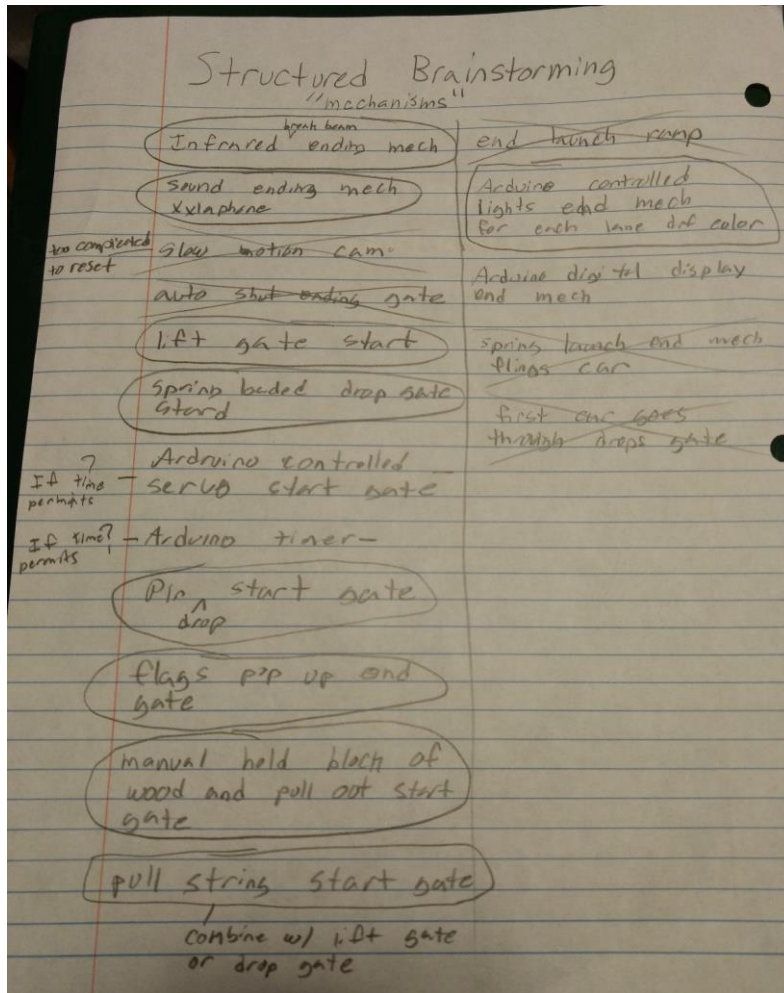 Structured Brainstorming
"mechanisms"
break beam
Infrared ending mech
sound ending mech
xylaphone
too complicated
to reset
slow motion cam
auto shut ending gate
lift gate start
spring loaded drop gate
start
If time ?
permits
Ardruino controlled
servo start gate
If time?
permits
- Arduino timer -
Pin ^ start gate
drop
flags pop up end
gate
manual hold block of
wood and pull out start
gate
pull string start gate
combine w/ lift gate
or drop gate
end launch ramp
Arduino controlled
lights end mech
for each lane dif color
Arduino digital display
end mech
spring launch end mech
flings car
first car goes
through drops gate